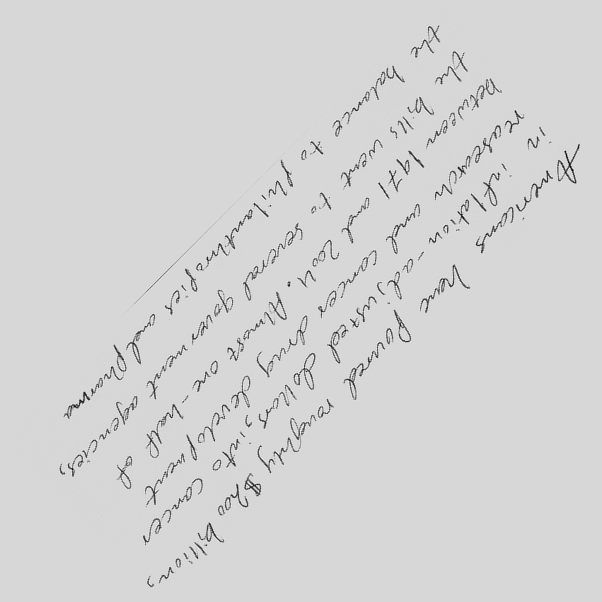 Americans have poured roughly $200 billion,
in inflation-adjusted dollars, into cancer
reasearch and cancer drug development
between 1971 and 2004. Almost one-half of
the bills went to several goverment agencies,
the balance to philanthropies and pharma